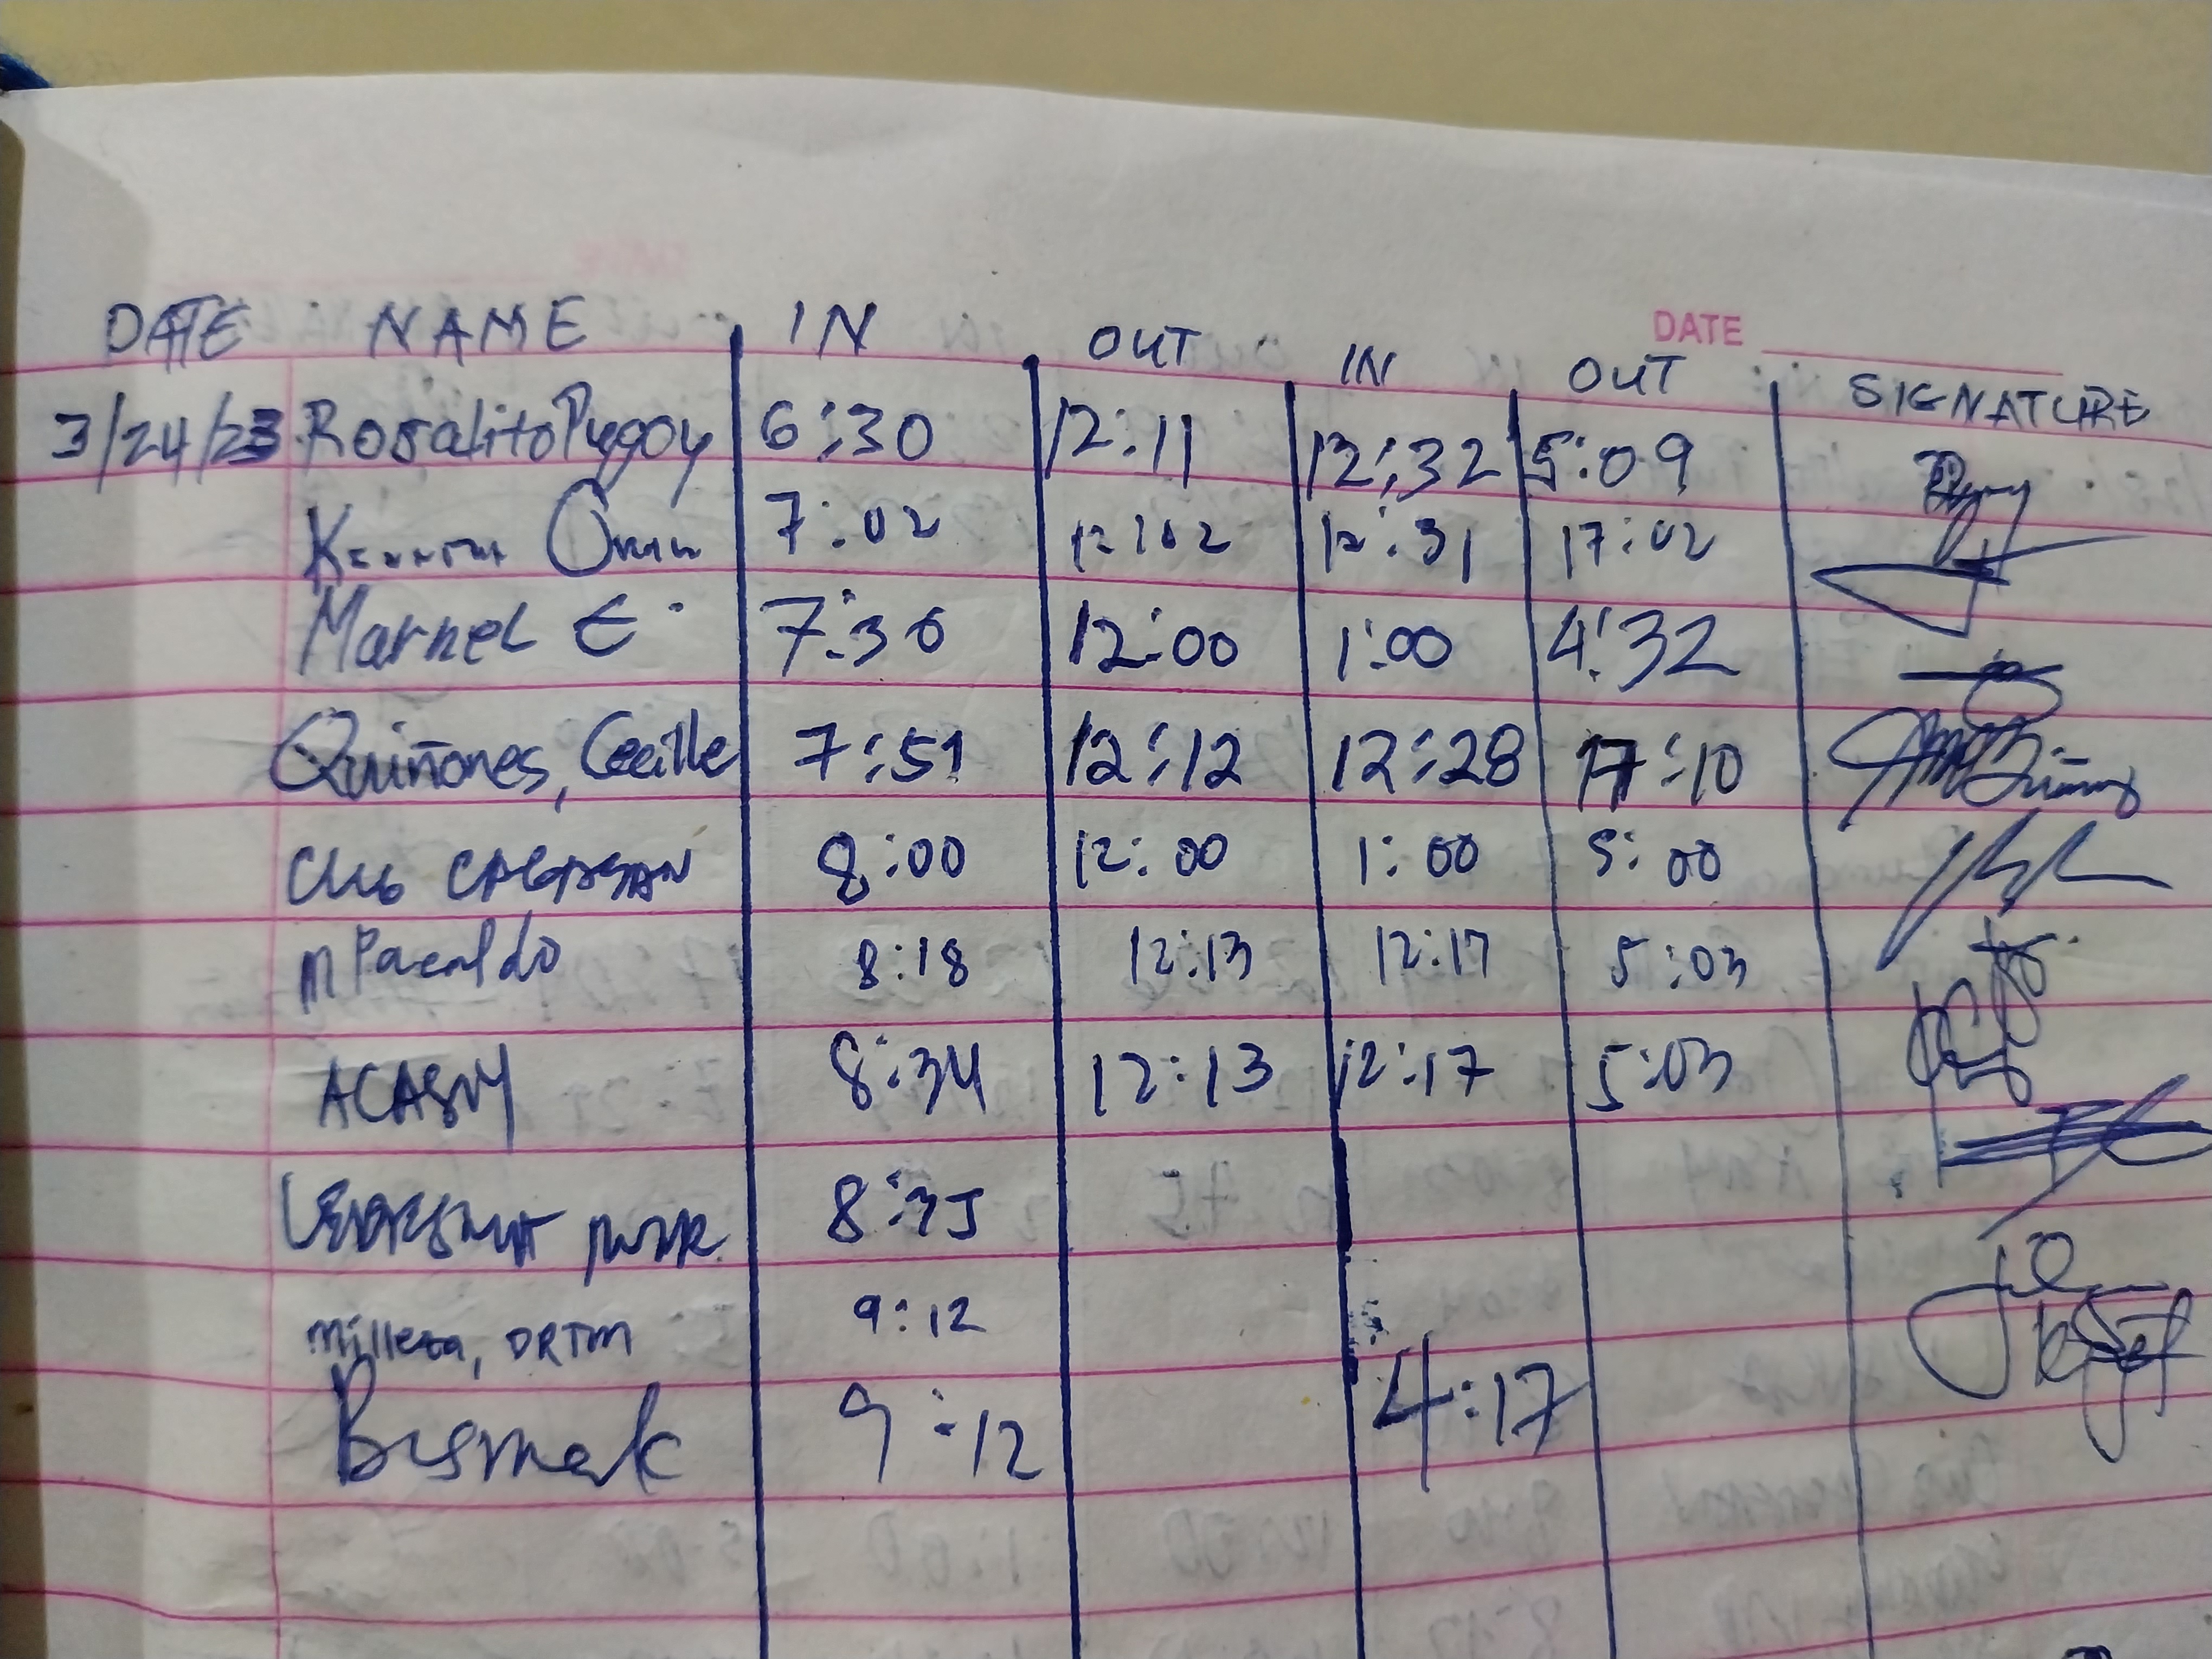 DATE
DATE NAME IN OUT IN OUT SIGNATURE
3/24/23 Rosalito Pygoy 6:30 12:11 12:32 5:09
7:02 12:02 12:31 17:02
Marnel E. 7:30 12:00 1:00 4:32
Quiñones, Cecille 7:51 12:12 12:28 17:10
8:00 12:00 1:00 5:00
8:18 12:13 12:17 5:03
8:34 12:13 12:17 5:03
8:35
9:12
9:12 4:17